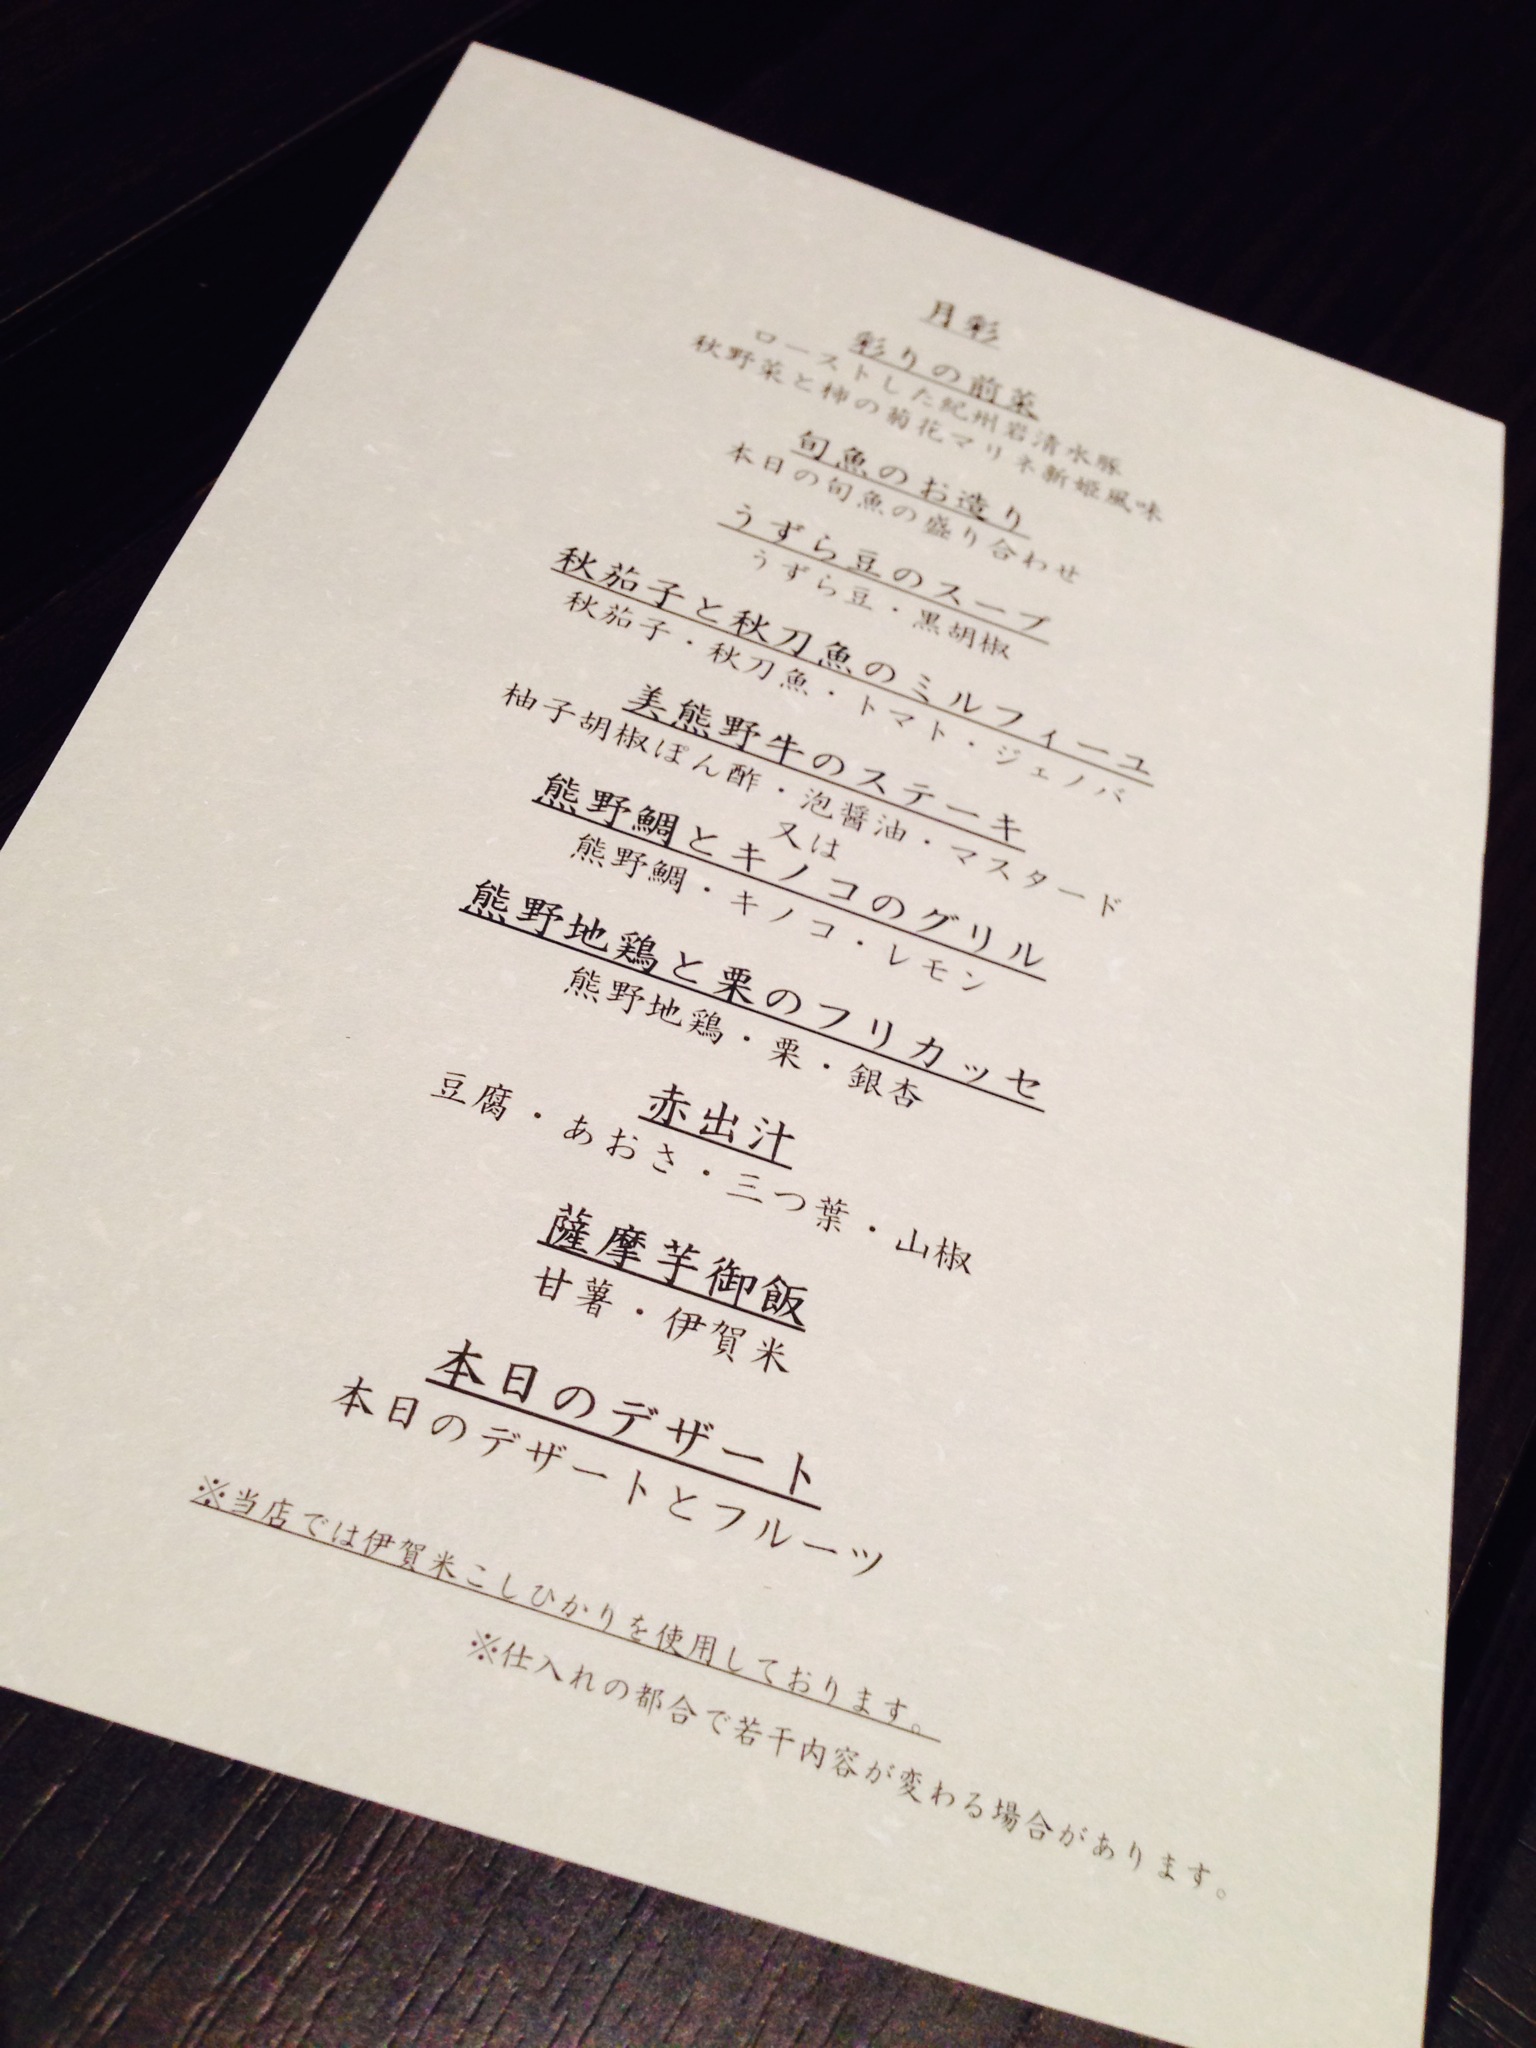 月彩
彩りの前菜
ローストした紀州岩清水豚
秋野菜と柿の菊花マリネ新姫風味
旬魚のお造り
本日の旬魚の盛り合わせ
うずら豆のスープ
うずら豆・黒胡椒
秋茄子と秋刀魚のミルフィーユ
秋茄子・秋刀魚・トマト・ジェノバ
美熊野牛のステーキ
柚子胡椒ぽん酢・泡醤油・マスタード
又は
熊野鯛とキノコのグリル
熊野鯛・キノコ・レモン
熊野地鶏と栗のフリカッセ
熊野地鶏・栗・銀杏
赤出汁
豆腐・あおさ・三つ葉・山椒
薩摩芋御飯
甘薯・伊賀米
本日のデザート
本日のデザートとフルーツ
※当店では伊賀米こしひかりを使用しております。
※仕入れの都合で若干内容が変わる場合があります。